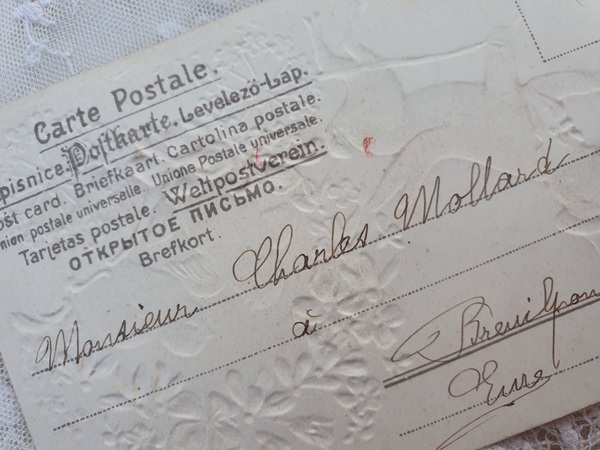 Carte Postale.
pisnice. Postkarte. Levelező-Lap.
ost card. Briefkaart. Cartolina postale.
nion postale universelle. Unione Postale universale.
Tarjetas postale. Weltpostverein.
ОТКРЫТОЕ ПИСЬМО.
Brefkort.
Monsieur Charles Mollard
à Breuilpon
Eure